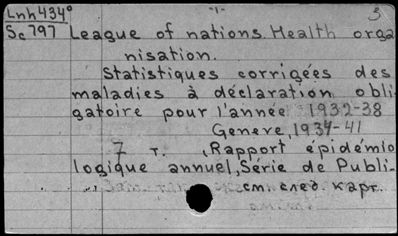 Lnh434° -1- 3
Sc797 League of nations. Health orga
nisation.
Statistiques corrigées des
maladies à déclaration obli
gatoire pour l'année 1932-38
Geneve, 1934-41
7 т. (Rapport épidémio
logique annuel, Série de Publi-
см. след. карт.